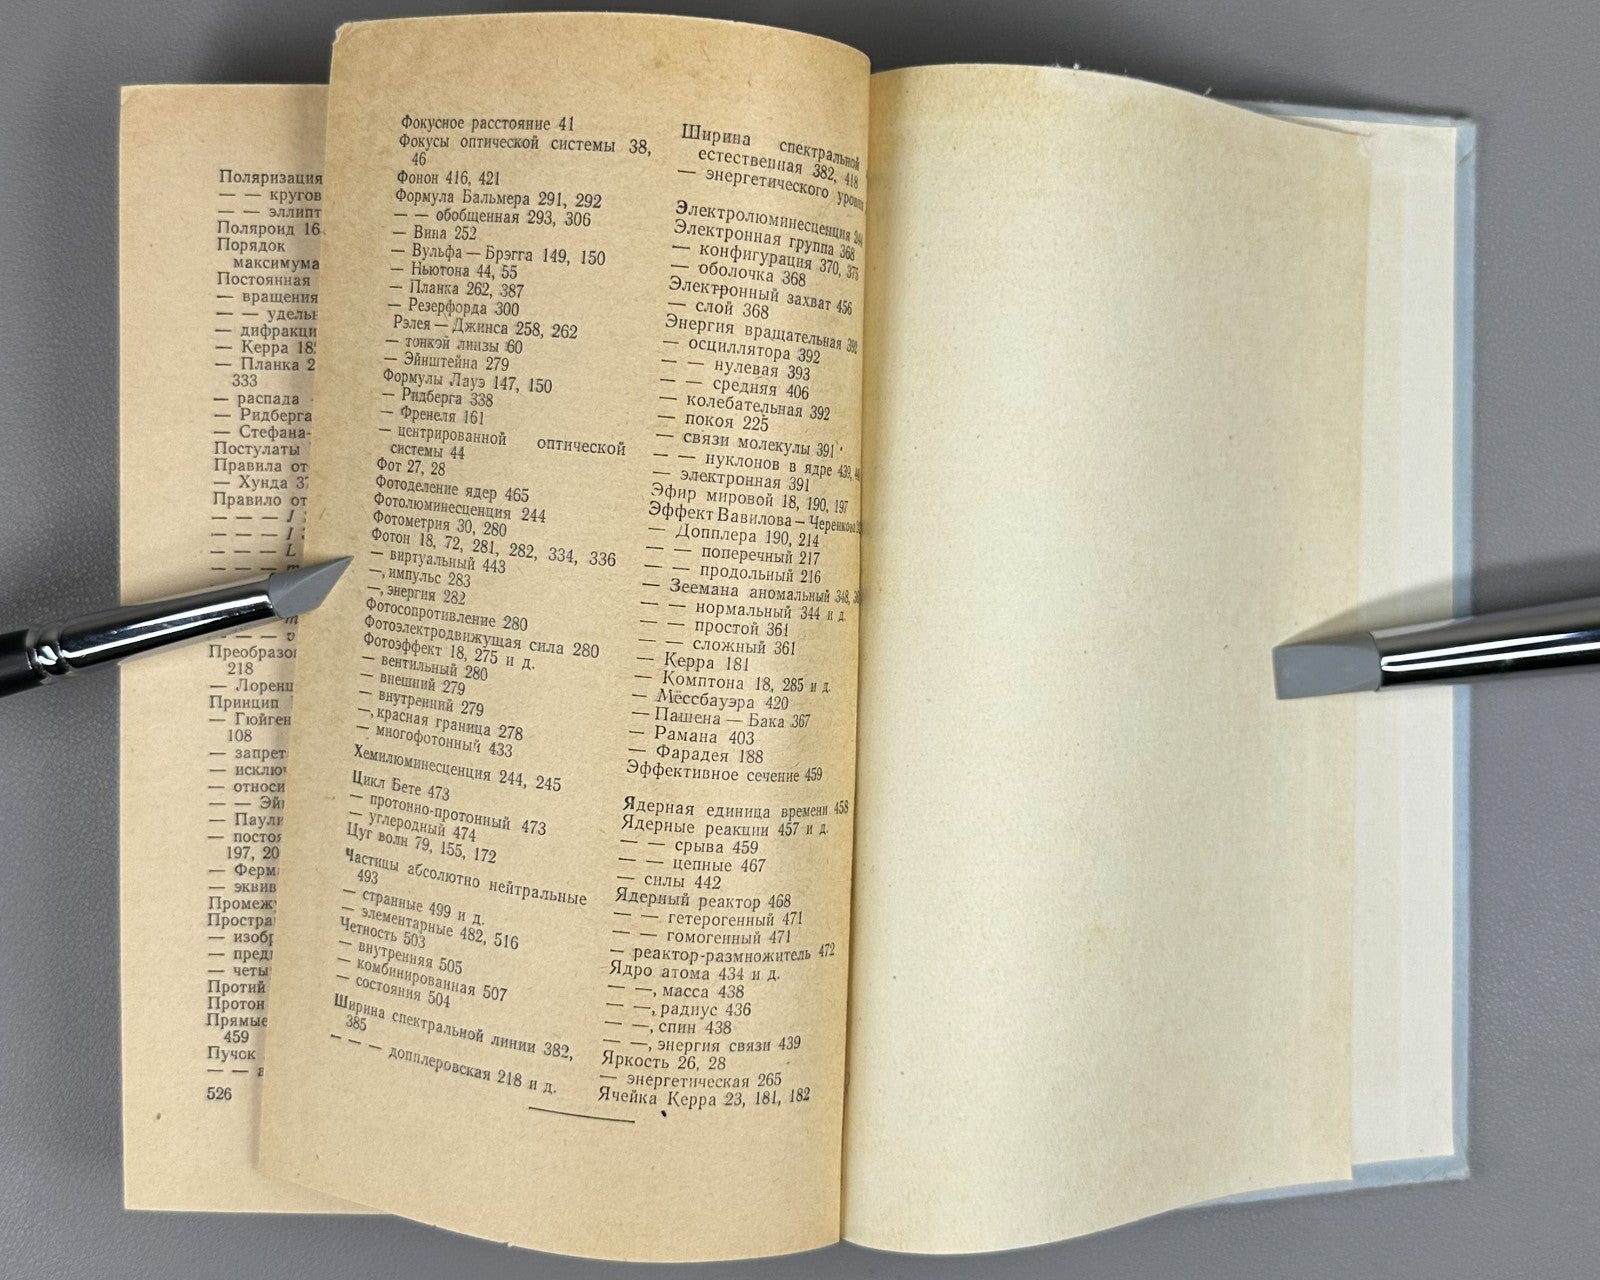 Поляризация
— — кругов
— — эллипт
Поляроид 16
Порядок
максимума
Постоянная
— вращения
— — удельн
— дифракци
— Керра 18
— Планка 2
333
— распада
— Ридберга
— Стефана-
Постулаты
Правила от
— Хунда 37
Правило от
— — — J
— — — l
— — — L
— — — m
Преобразов
218
— Лоренц
Принцип
— Гюйген
108
— запрет
— исклю
— относи
— — Эй
— Паули
— постоя
197, 20
— Ферм
— эквив
Промеж
Простра
— изобр
— предм
— четы
Протий
Протон
Прямые
459
Пучок
— — а
526
Фокусное расстояние 41
Фокусы оптической системы 38,
46
Фонон 416, 421
Формула Бальмера 291, 292
— — обобщенная 293, 306
— Вина 252
— Вульфа — Брэгга 149, 150
— Ньютона 44, 55
— Планка 262, 387
— Резерфорда 300
Рэлея — Джинса 258, 262
— тонкэй линзы 60
— Эйнштейна 279
Формулы Лауэ 147, 150
— Ридберга 338
— Френеля 161
— центрированной оптической
системы 44
Фот 27, 28
Фотоделение ядер 465
Фотолюминесценция 244
Фотометрия 30, 280
Фотон 18, 72, 281, 282, 334, 336
— виртуальный 443
—, импульс 283
—, энергия 282
Фотосопротивление 280
Фотоэлектродвижущая сила 280
Фотоэффект 18, 275 и д.
— вентильный 280
— внешний 279
— внутренний 279
—, красная граница 278
— многофотонный 433
Хемилюминесценция 244, 245
Цикл Бете 473
— протонно-протонный 473
— углеродный 474
Цуг волн 79, 155, 172
Частицы абсолютно нейтральные
493
— странные 499 и д.
— элементарные 482, 516
Четность 503
— внутренняя 505
— комбинированная 507
— состояния 504
Ширина спектральной линии 382,
385
— — — допплеровская 218 и д.
Ширина спектральной
естественная 382, 418
— энергетического уровня
Электролюминесценция 244
Электронная группа 368
— конфигурация 370, 375
— оболочка 368
Электронный захват 456
— слой 368
Энергия вращательная 392
— осциллятора 392
— — нулевая 393
— — средняя 406
— колебательная 392
— покоя 225
— связи молекулы 391
— — нуклонов в ядре 439,
— электронная 391
Эфир мировой 18, 190, 197
Эффект Вавилова — Черенкова
— Допплера 190, 214
— — поперечный 217
— — продольный 216
— Зеемана аномальный 348,
— — нормальный 344 и д.
— — простой 361
— — сложный 361
— Керра 181
— Комптона 18, 285 и д.
— Мёссбауэра 420
— Пашена — Бака 367
— Рамана 403
— Фарадея 188
Эффективное сечение 459
Ядерная единица времени 458
Ядерные реакции 457 и д.
— — срыва 459
— — цепные 467
— силы 442
Ядерный реактор 468
— — гетерогенный 471
— — гомогенный 471
— реактор-размножитель 472
Ядро атома 434 и д.
— —, масса 438
— —, радиус 436
— —, спин 438
— —, энергия связи 439
Яркость 26, 28
— энергетическая 265
Ячейка Керра 23, 181, 182